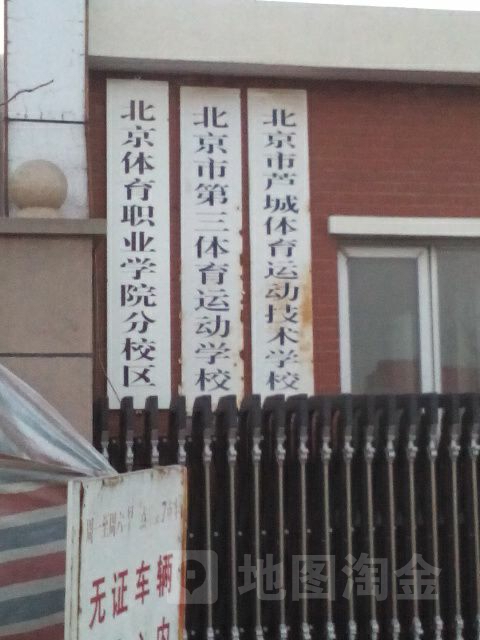 北京体育职业学院分校区
北京市第三体育运动学校
北京市芦城体育运动技术学校
周一至周六早
无证车辆
内
地图淘金